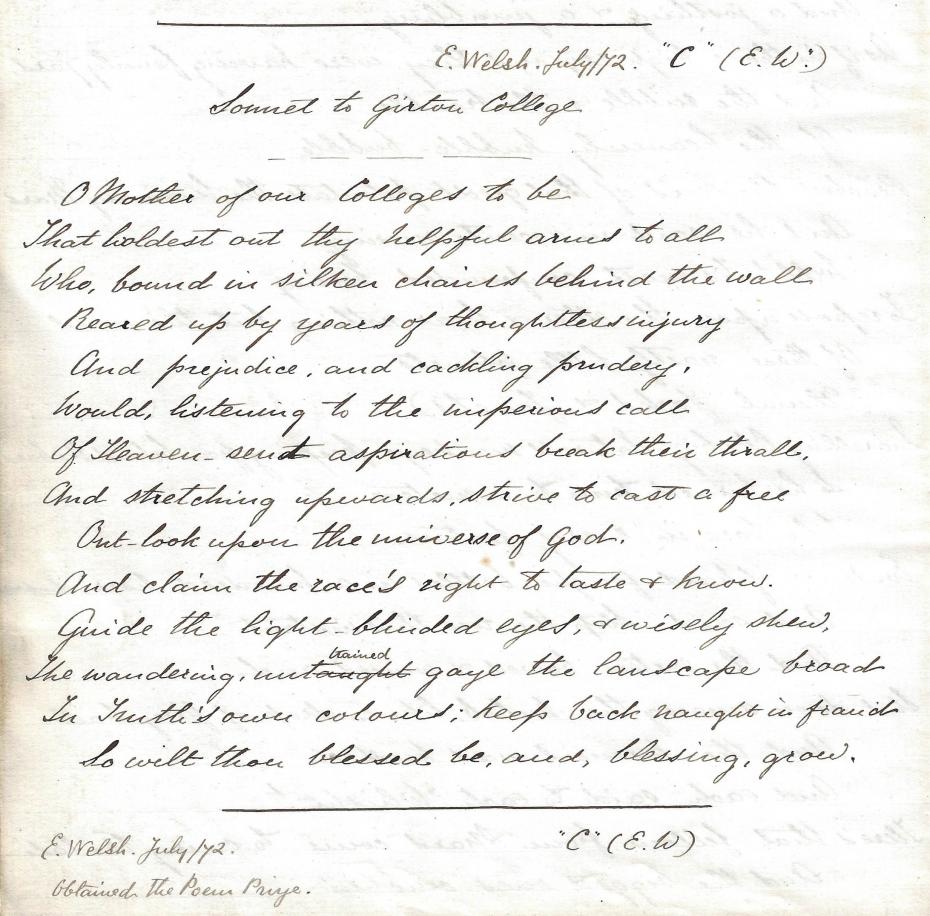 E. Welsh. July/72. "C" (E. W.)
Sonnet to Girton College
O Mother of our Colleges to be
That holdest out thy helpful arms to all
Who, bound in silken chains behind the wall
Reared up by years of thoughtless injury
And prejudice, and cackling prudery,
Would, listening to the imperious call
Of Heaven-sent aspirations break their thrall,
And stretching upwards, strive to cast a free
Out-look upon the universe of God.
And claim the race's right to taste & know.
Guide the light-blinded eyes, & wisely shew,
trained
The wandering, untaught gaze the landscape broad
In Truth's own colours; keep back naught in fraud
So wilt thou blessed be, and, blessing, grow.
"C" (E. W)
E. Welsh. July/72.
Obtained the Poem Prize.